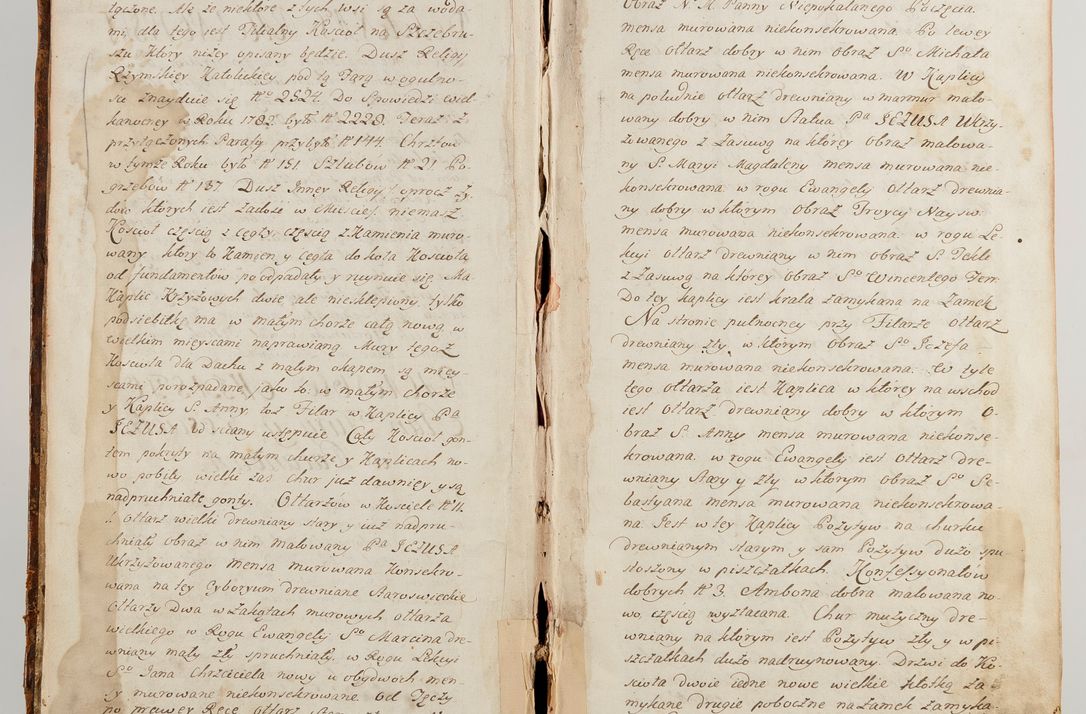 łączone. Ale ze niektóre z tych wsi są za woda-
mi, dla tego jest Filialny Kosciół na Szczebru-
szu który niżey opisany będzie. Dusz Religij
Rzymskiey Katolickiey pod tą Parą w ogulno-
sci znayduie się No 2524. Do Spowiedzi wiel-
kanocney w Roku 1782 było No 2228. Teraz z
przyłączonych Parafij przybyło No 144. Chrztów
w tymże Roku było No 151 Szlubów No 21 Po-
grzebów No 137. Dusz Inney Religij oprocz ży-
dow których iest zadość w Miescie niemasz
Kosciół częscią z Cegły częscią z Kamienia muro-
wany który to Kamien y Cegła do koła Kosciola
od fundamentów poodpadały y ruynuie się. Ma
Kaplic Krzyżowych dwie ale niesklepiony, tylko
podsiebitkę ma w małym chorze całą nową w
wielkim mieyscami naprawianą Mury tegoż
Kosciola dla Dachu z małym okapem są miey-
scami porozpadane, jako to w małym chorze
y Kaplicy S. Anny, toż Filar w Kaplicy Pa
JEZUSA od sciany ustępuie Cały Kosciół gon-
tem pokryty na małym churze y Kaplicach no-
wo pobity wielki zas chur już dawniey y są
nadpruchniałe gonty. Ołtarzów w Kosciele No 11.
1. Ołtarz wielki drewniany stary y iuż nadpru-
chniały obraz w nim malowany Pa JEZUSA
Ukrzyżowanego mensa murowana Konsekro-
wana na tey Cyboryum drewniane Staroswieckie
Ołtarzy Dwa w Zakątach murowych ołtarza
wielkiego w Rogu Ewangelij So Marcina dre-
wniany mały zły spruchniały, w Rogu Lekcyi
So Jana Chrzciciela nowy u obydwoch men-
sy murowane niekonsekrowane. Od Tęczy
no prawey Ręce ołtarz
Obraz N. M. Panny Niepokalanego Poczęcia.
mensa murowana niekonsekrowana. Po lewey
Ręce ołtarz dobry w nim Obraz So Michała
mensa murowana niekonsekrowana. W Kaplicy
na południe ołtarz drewniany w marmur malo-
wany dobry w nim Statua Pa JEZUSA Ukrzy-
żowanego z Zasuwą na którey obraz malowa-
ny S. Maryi Magdaleny mensa murowana nie-
konsekrowana. w rogu Ewangelij Ołtarz drewnia-
ny dobry w którym Obraz Troycy Nayśw:
mensa murowana niekonsekrowana. w rogu Le-
kcyi ołtarz drewniany w nim obraz S. Tekli
z Zasuwą na którey obraz So Wincentego Ferr.
Do tey kaplicy iest krata zamykana na Zamek
Na stronie pułnocney przy Filarze Ołtarz
drewniany zły, w którym Obraz So Jozefa
mensa murowana niekonsekrowana. W tyle
tego ołtarza iest Kaplica w którey na wschod
iest Ołtarz drewniany dobry w którym O-
braz S. Anny mensa murowana niekonse-
krowana. w rogu Ewangelij iest Ołtarz dre-
wniany Stary y zły w którym obraz So Se-
bastyana mensa murowana niekonsekrowa-
na. Jest w tey Kaplicy Pozytyw na churku
drewnianym starym y sam Pozytyw dużo spu-
stoszony w piszczałkach. Konfessyonałów
dobrych No 3. Ambona dobra malowana no-
wo, częscią wyzłacana. Chur muzyczny dre-
wniany na którym iest Pozytyw zły y w pi-
szczałkach dużo nadruynowany. Drzwi do Ko-
sciola dwoie iedne nowe wielkie kłotką za-
mykane drugie poboczne na Zamek zamyka-